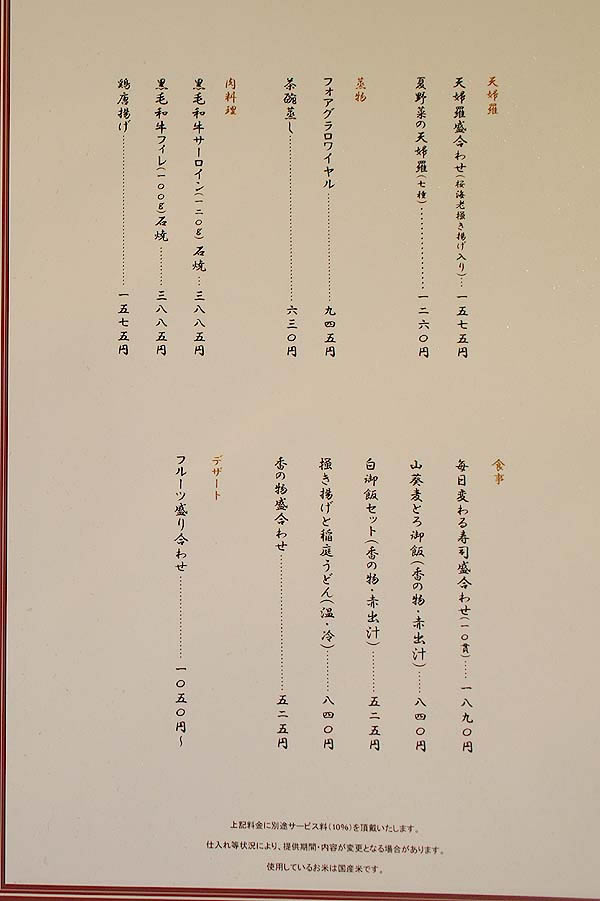 天婦羅
天婦羅盛合わせ(桜海老掻き揚げ入り)…一五七五円
夏野菜の天婦羅(七種)……………一二六〇円
蒸物
フォアグラロワイヤル……………九四五円
茶碗蒸し……………六三〇円
肉料理
黒毛和牛サーロイン(一二〇g)石焼…三八八五円
黒毛和牛フィレ(一〇〇g)石焼………三八八五円
鶏唐揚げ……………一五七五円
食事
毎日変わる寿司盛合わせ(一〇貫)……一八九〇円
山葵麦とろ御飯(香の物・赤出汁)………八四〇円
白御飯セット(香の物・赤出汁)………五二五円
掻き揚げと稲庭うどん(温・冷)………八四〇円
香の物盛合わせ……………五二五円
デザート
フルーツ盛り合わせ……………一〇五〇円~
上記料金に別途サービス料(10%)を頂戴いたします。
仕入れ等状況により、提供期間・内容が変更となる場合があります。
使用しているお米は国産米です。